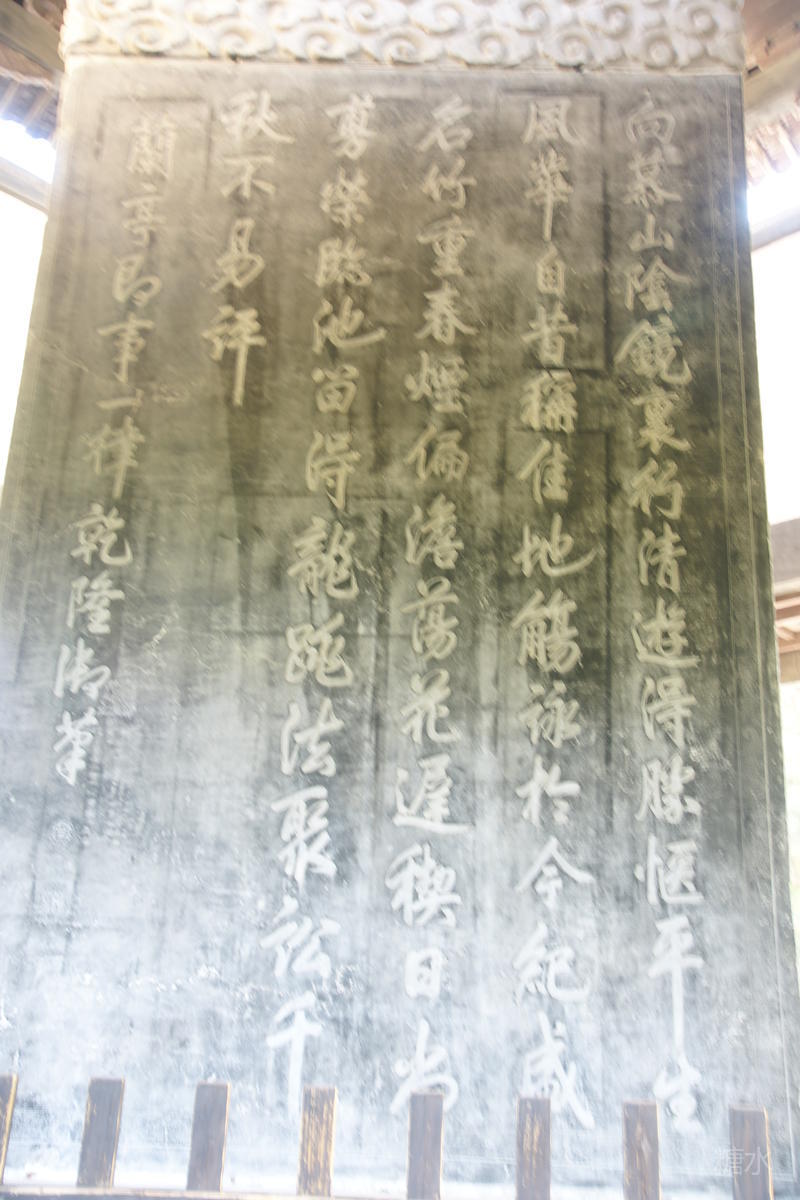 向慕山陰鏡裏行清遊得勝愜平生
風華自昔稱佳地觴詠於今紀盛
名竹重春煙偏澹蕩花遲禊日尚
芳榮臨池留得龍跳法聚訟千
秋不易評
蘭亭即事一律 乾隆御筆
糖水